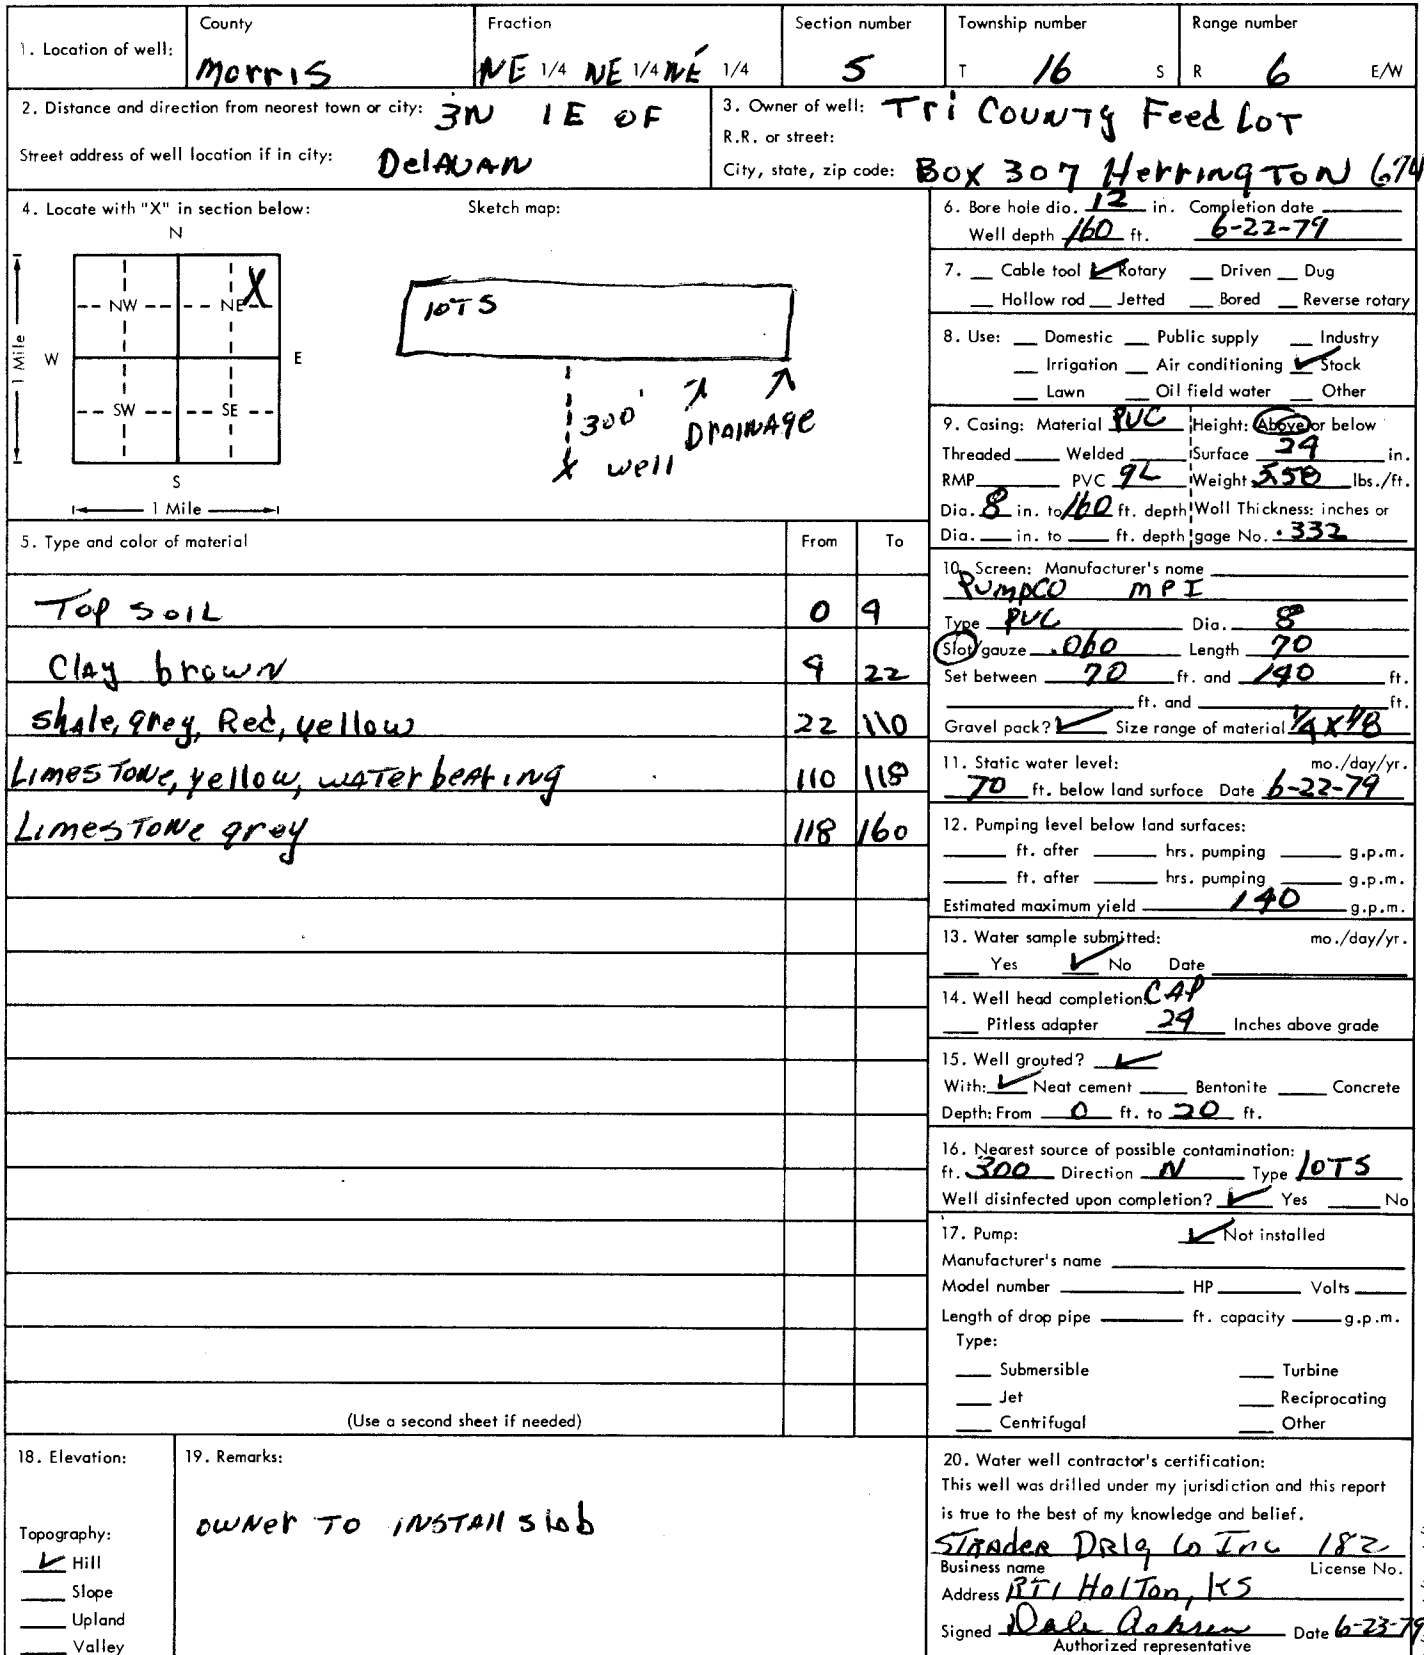 1. Location of well:
County
Morris
Fraction
NE 1/4 NE 1/4 NE 1/4
Section number
5
Township number
T 16 S
Range number
R 6 E/W
2. Distance and direction from nearest town or city: 3N 1E OF
Street address of well location if in city: DelAVAN
3. Owner of well: Tri COUNTy Feed LOT
R.R. or street:
City, state, zip code: BOX 307 HerringTON 674
4. Locate with "X" in section below:
Sketch map:
N
NW NE X
W E
SW SE
S
1 Mile
1 Mile
lOTS
300'
DrAINAge
X well
5. Type and color of material From To
Top SOIL 0 4
ClAy brown 4 22
ShAle, grey, Red, yellow 22 110
LIMESTONe, yellow, wATer beAring 110 118
LIMESTONe grey 118 160
(Use a second sheet if needed)
6. Bore hole dia. 12 in. Completion date
Well depth 160 ft. 6-22-79
7. Cable tool ✓ Rotary Driven Dug
Hollow rod Jetted Bored Reverse rotary
8. Use: Domestic Public supply Industry
Irrigation Air conditioning ✓ Stock
Lawn Oil field water Other
9. Casing: Material PVC Height: Above or below
Threaded Welded Surface 24 in.
RMP PVC 9L Weight 550 lbs./ft.
Dia. 8 in. to 160 ft. depth Wall Thickness: inches or
Dia. in. to ft. depth gage No. .332
10. Screen: Manufacturer's name
PUMPCO MPI
Type PVC Dia. 8
Slot/gauze .060 Length 70
Set between 70 ft. and 140 ft.
ft. and ft.
Gravel pack? ✓ Size range of material 1/4 X 1/8
11. Static water level: mo./day/yr.
70 ft. below land surface Date 6-22-79
12. Pumping level below land surfaces:
ft. after hrs. pumping g.p.m.
ft. after hrs. pumping g.p.m.
Estimated maximum yield 140 g.p.m.
13. Water sample submitted: mo./day/yr.
Yes ✓ No Date
14. Well head completion: CAP
Pitless adapter 24 Inches above grade
15. Well grouted? ✓
With: ✓ Neat cement Bentonite Concrete
Depth: From 0 ft. to 20 ft.
16. Nearest source of possible contamination:
ft. 300 Direction N Type lOTS
Well disinfected upon completion? ✓ Yes No
17. Pump: ✓ Not installed
Manufacturer's name
Model number HP Volts
Length of drop pipe ft. capacity g.p.m.
Type:
Submersible Turbine
Jet Reciprocating
Centrifugal Other
18. Elevation:
Topography:
✓ Hill
Slope
Upland
Valley
19. Remarks:
OWNer TO INSTAll slab
20. Water well contractor's certification:
This well was drilled under my jurisdiction and this report
is true to the best of my knowledge and belief.
STRAdeR DRlg Co Inc 182
Business name License No.
Address RT1 HolTon, KS
Signed Dale Date 6-23-79
Authorized representative